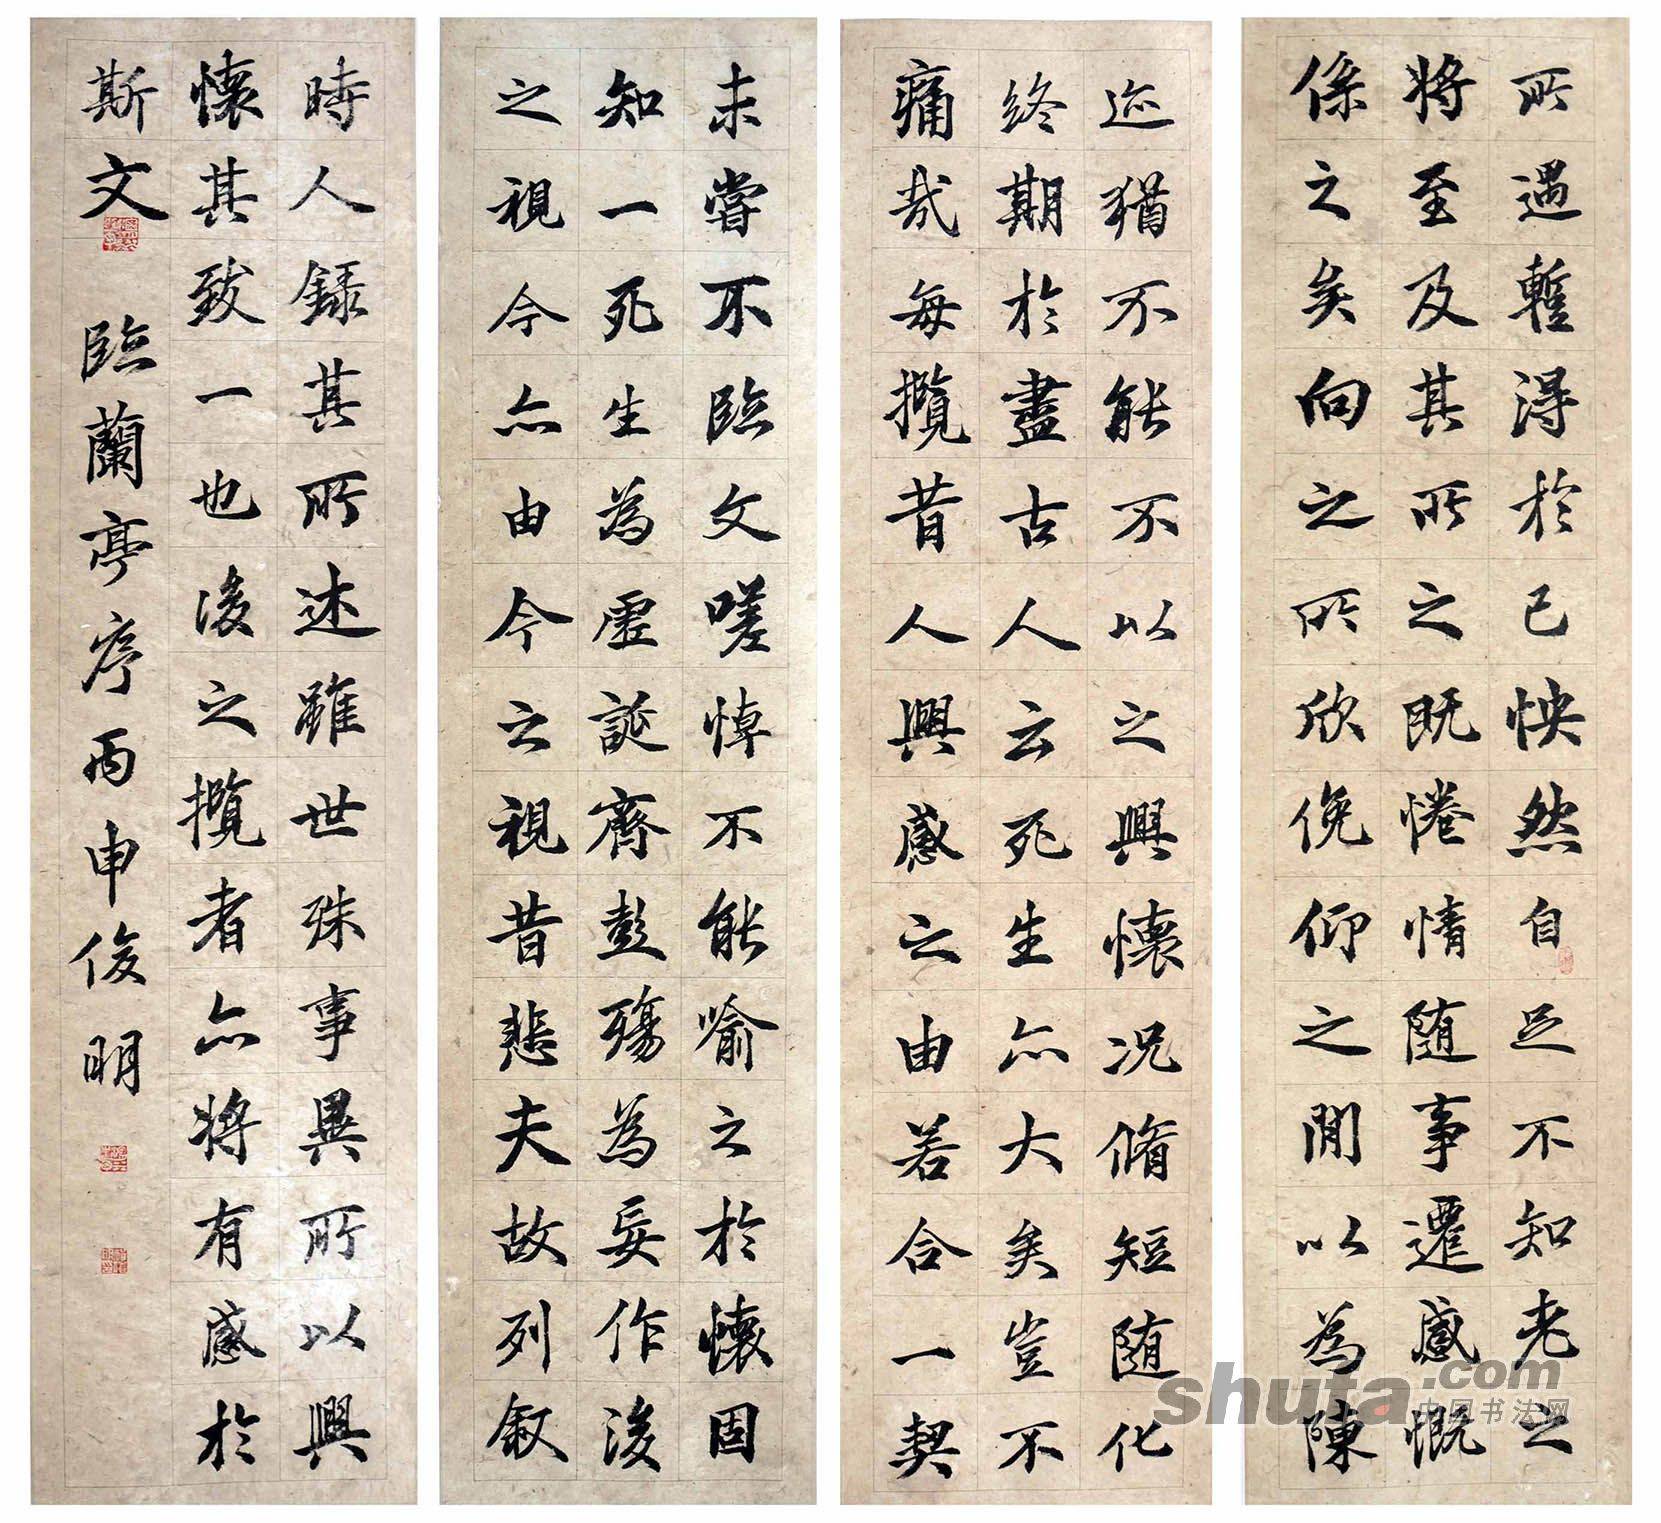 所遇暫得於己怏然自足不知老之
將至及其所之既惓情隨事遷感慨
係之矣向之所欣俛仰之閒以為陳
迹猶不能不以之興懷況脩短隨化
終期於盡古人云死生亦大矣豈不
痛哉每攬昔人興感之由若合一契
未嘗不臨文嗟悼不能喻之於懷固
知一死生為虛誕齊彭殤為妄作後
之視今亦由今之視昔悲夫故列敘
時人錄其所述雖世殊事異所以興
懷其致一也後之攬者亦將有感於
斯文 臨蘭亭序丙申俊明
shufa.com
中国书法网